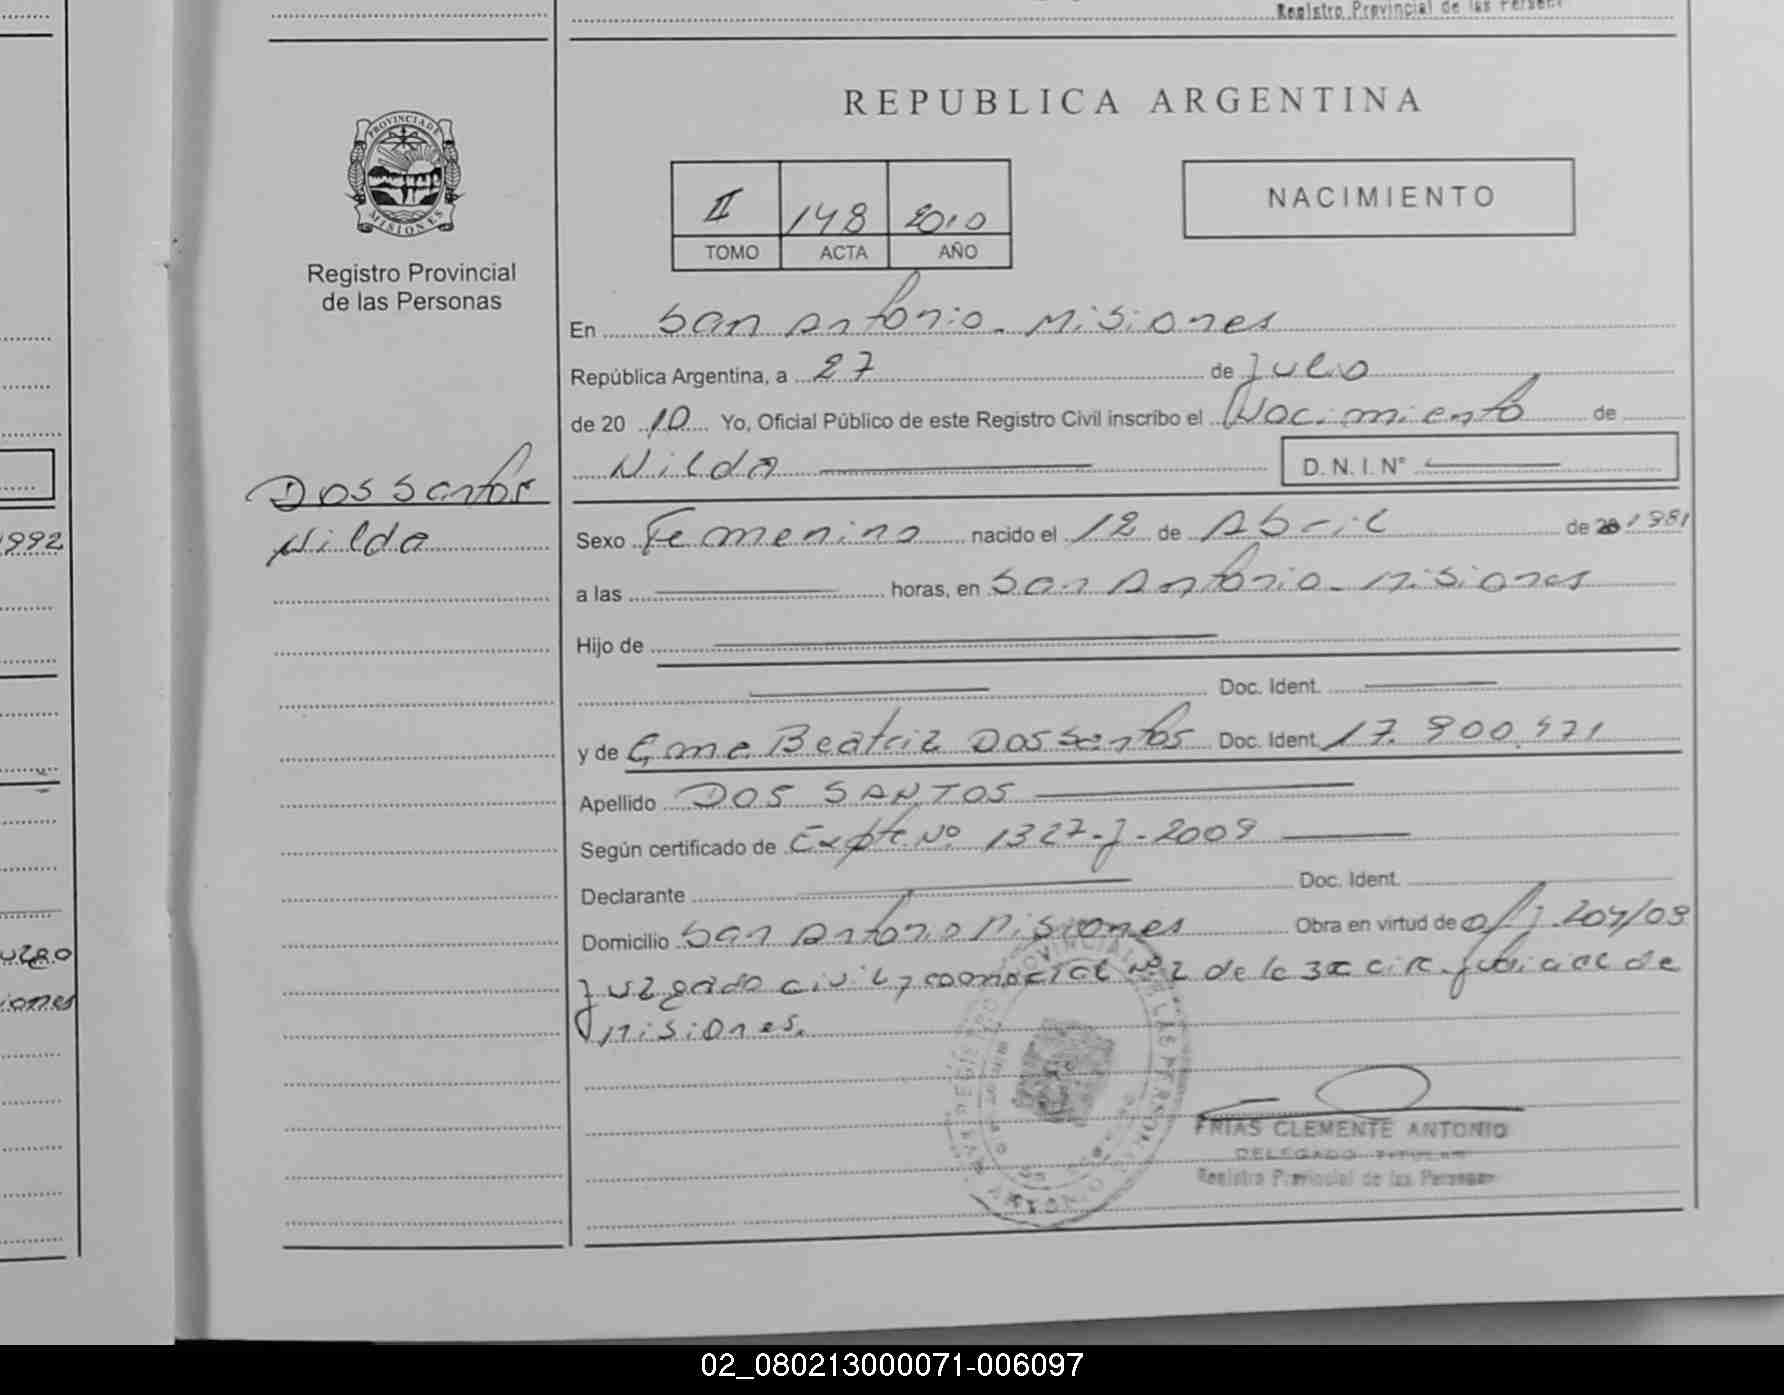 Registro Provincial de las Person
REPUBLICA ARGENTINA
PROVINCIA DE
MISIONES
Registro Provincial
de las Personas
II 148 2010
TOMO ACTA AÑO
NACIMIENTO
En San Antonio - Misiones
República Argentina, a 27 de Julio
de 20 10 Yo, Oficial Público de este Registro Civil inscribo el Nacimiento de
Nilda D. N. I. Nº
Dos Santos
Nilda
Sexo Femenino nacido el 12 de Abril de 1981
a las horas, en San Antonio - Misiones
Hijo de
Doc. Ident.
y de Beatriz Dos Santos Doc. Ident. 17.900.571
Apellido DOS SANTOS
Según certificado de Expte. Nº 1327-J-2009
Declarante Doc. Ident.
Domicilio San Antonio Misiones Obra en virtud de
Juzgado civil y comercial Nº 2 de la 3ra cir. judicial de
Misiones.
FRIAS CLEMENTE ANTONIO
DELEGADO TITULAR
Registro Provincial de las Personas
1992
iones
02_080213000071-006097